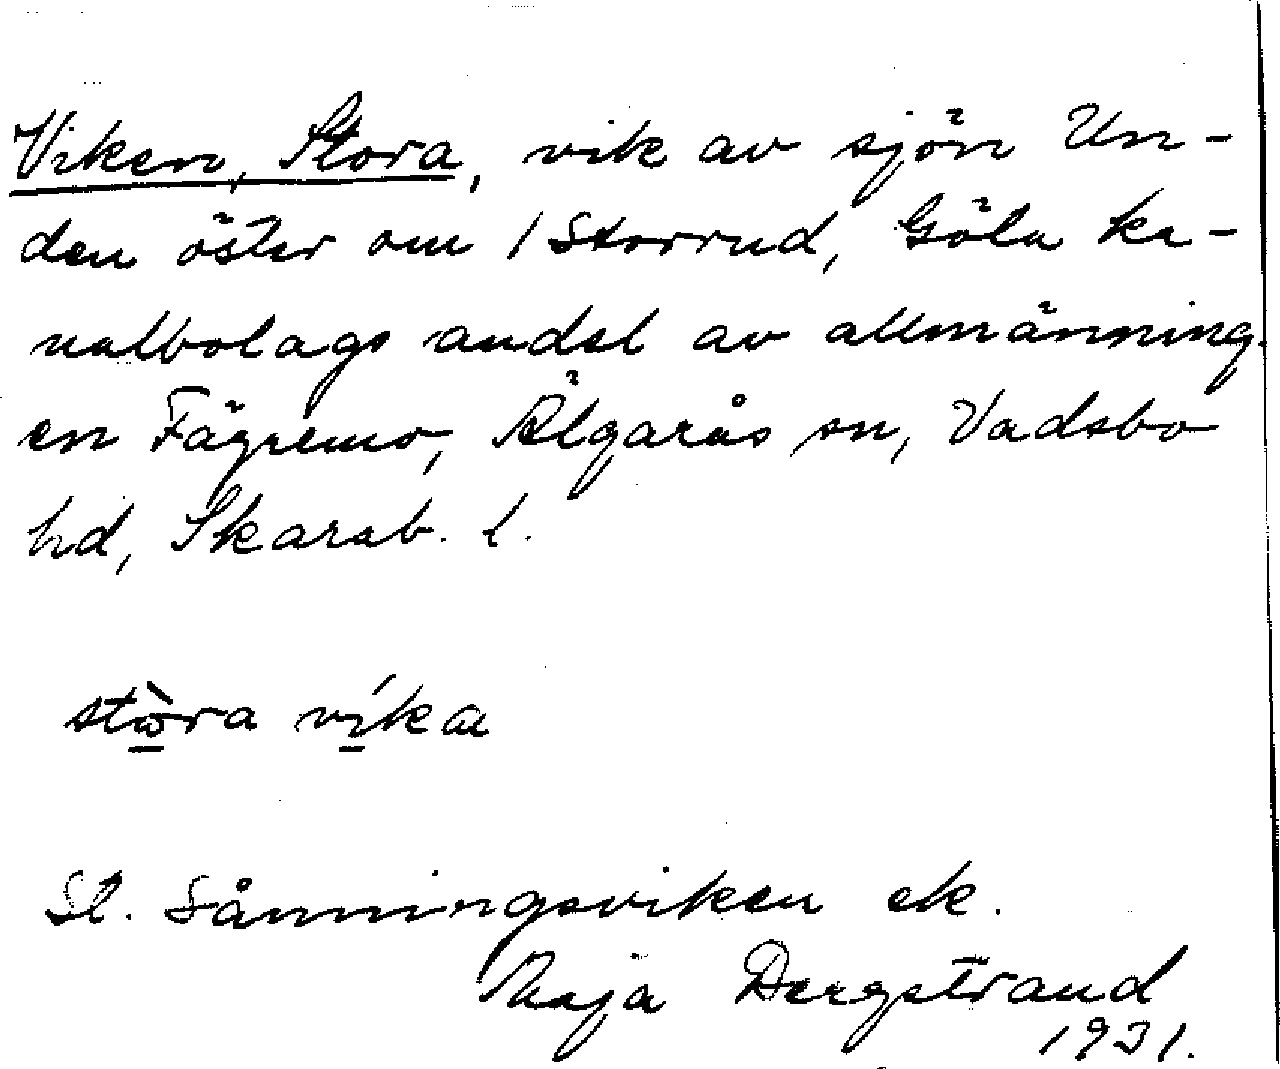 Viken, Stora, vik av sjön Un-
den öster om 1 Storrud, Göta ka-
nalbolags andel av allmänning-
en Fägremo, Älgarås sn, Vadsbo
hd, Skarab. l.
stòra víka
St. Sånningsviken ek.
Maja Bergstrand
1931.